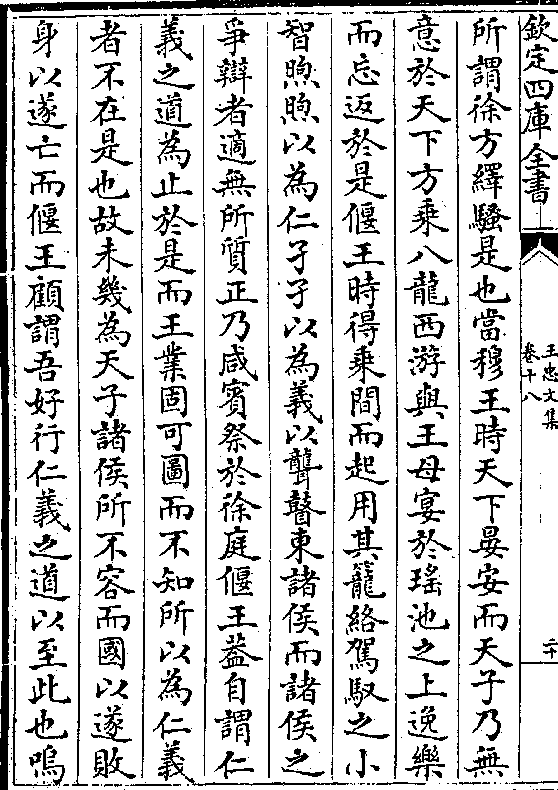 欽定四庫全書
王忠文集
卷十八
二十
所謂徐方繹騷是也當穆王時天下晏安而天子乃無
意於天下方乗八龍西游與王母宴於瑤池之上逸樂
而忘返於是偃王時得乗間而起用其籠絡駕馭之小
智煦煦以為仁孑孑以為義以聾瞽東諸侯而諸侯之
爭辯者適無所質正乃咸賓祭於徐庭偃王葢自謂仁
義之道為止於是而王業固可圖而不知所以為仁義
者不在是也故未幾為天子諸侯所不容而國以遂敗
身以遂亡而偃王顧謂吾好行仁義之道以至此也嗚